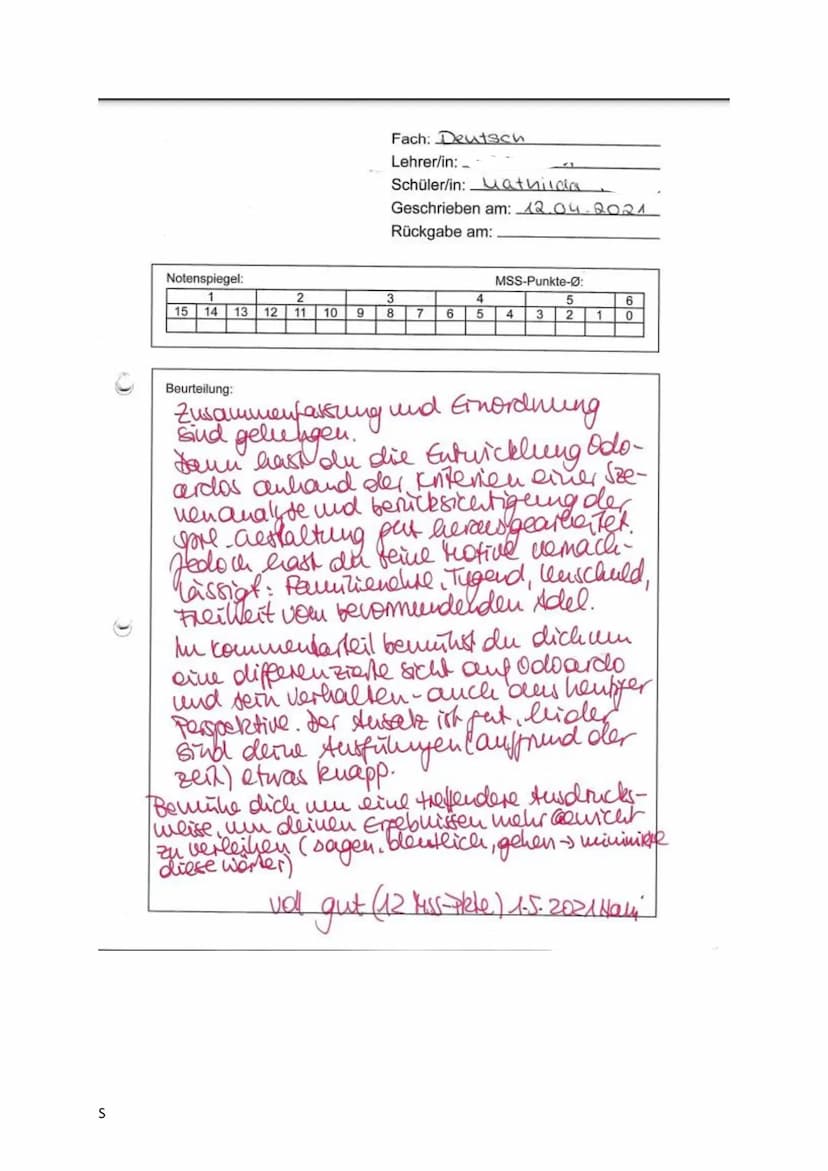 Fach: Deutsch
Lehrer/in:
Schüler/in: Mathilda
Geschrieben am: 12.04.2021
Rückgabe am:
Notenspiegel: MSS-Punkte-Ø:
1 2 3 4 5 6
15 14 13 12 11 10 9 8 7 6 5 4 3 2 1 0
Beurteilung:
Zusammenfassung und Einordnung
sind gelungen.
Dann hast du die Entwicklung Odo-
ardos anhand der Kriterien einer Sze-
nenanalyse und Berücksichtigung der
spr. Gestaltung gut herausgearbeitet.
Jedoch hast du seine Motive vernach-
lässigt: Familienehre, Tugend, Unschuld,
Freiheit vom bevormundenden Adel.
Im Kommentarteil bemühst du dich um
eine differenzierte Sicht auf Odoardo
und sein Verhalten - auch aus heutiger
Perspektive. Der Ansatz ist gut, leider
sind deine Ausführungen (aufgrund der
Zeit) etwas knapp.
Bemühe dich um eine treffendere Ausdrucks-
weise, um deinen Ergebnissen mehr Gewicht
zu verleihen (sagen, deutlich, gehen → minimiere
diese Wörter)
voll gut (12 MSS-Pkte) 1.5.2021
S